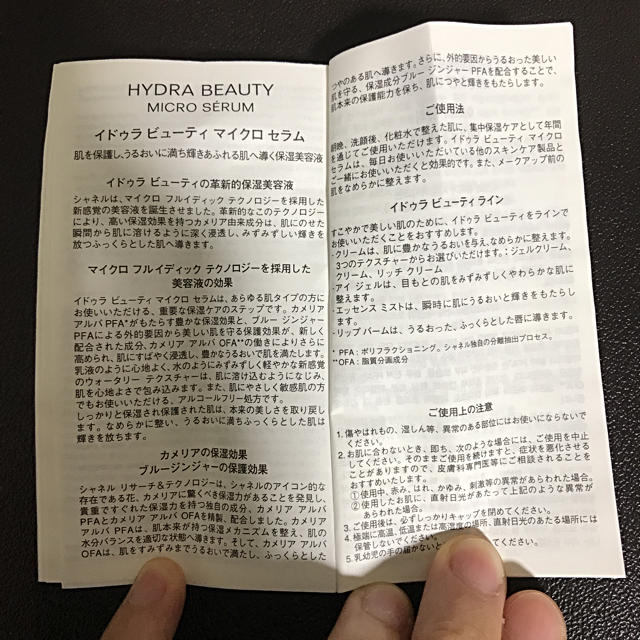 HYDRA BEAUTY
MICRO SÉRUM
イドゥラ ビューティ マイクロ セラム
肌を保護し、うるおいに満ち輝きあふれる肌へ導く保湿美容液
イドゥラ ビューティの革新的保湿美容液
シャネルは、マイクロ フルイディック テクノロジーを採用した
新感覚の美容液を誕生させました。革新的なこのテクノロジー
により、高い保湿効果を持つカメリア由来成分は、肌にのせた
瞬間から肌に溶けるように深く浸透し、みずみずしい輝きを
放つふっくらとした肌へ導きます。
マイクロ フルイディック テクノロジーを採用した
美容液の効果
イドゥラ ビューティ マイクロ セラムは、あらゆる肌タイプの方に
お使いいただける、重要な保湿ケアのステップです。カメリア
アルバ PFA*がもたらす豊かな保湿効果と、ブルー ジンジャー
PFAによる外的要因から美しい肌を守る保護効果が、新しく
配合された成分、カメリア アルバ OFA**の働きによりさらに
高められ、肌にすばやく浸透し、豊かなうるおいで肌を満たします。
乳液のように心地よく、水のようにみずみずしく軽やかな新感覚
のウォータリー テクスチャーは、肌に溶け込むようになじみ、
肌を心地よさで包み込みます。また、肌にやさしく敏感肌の方
でもお使いいただける、アルコールフリー処方です。
しっかりと保湿され保護された肌は、本来の美しさを取り戻し
ます。なめらかに整い、うるおいに満ちふっくらとした肌は
輝きを放ちます。
カメリアの保湿効果
ブルージンジャーの保護効果
シャネル リサーチ&テクノロジーは、シャネルのアイコン的な
存在である花、カメリアに驚くべき保湿力があることを発見し、
貴重ですぐれた保湿力を持つ独自の成分、カメリア アルバ
PFAとカメリア アルバ OFAを精製、配合しました。カメリア
アルバ PFAは、肌本来が持つ保湿メカニズムを整え、肌の
水分バランスを適切な状態へ導きます。そして、カメリア アルバ
OFAは、肌をすみずみまでうるおいで満たし、ふっくらとした
つやのある肌へ導きます。さらに、外的要因からうるおった美しい
肌を守る、保湿成分ブルー ジンジャー PFAを配合することで、
肌本来の保護能力を保ち、肌につやと輝きをもたらします。
ご使用法
朝晩、洗顔後、化粧水で整えた肌に、集中保湿ケアとして年間
を通じてご使用いただけます。イドゥラ ビューティ マイクロ
セラムは、毎日お使いいただいている他のスキンケア製品と
ご一緒にお使いいただくと効果的です。また、メークアップ前の
肌をなめらかに整えます。
イドゥラ ビューティ ライン
すこやかで美しい肌のために、イドゥラ ビューティをラインで
お使いいただくことをおすすめします。
・クリームは、肌に豊かなうるおいを与え、なめらかに整えます。
3つのテクスチャーからお選びいただけます:ジェルクリーム、
クリーム、リッチ クリーム
・アイ ジェルは、目もとの肌をみずみずしくやわらかな肌に
整えます。
・エッセンス ミストは、瞬時に肌にうるおいと輝きをもたらし
ます。
・リップ バームは、うるおった、ふっくらとした唇に導きます。
* PFA:ポリフラクショニング。シャネル独自の分離抽出プロセス。
**OFA:脂質分画成分
ご使用上の注意
1. 傷やはれもの、湿しん等、異常のある部位にはお使いにならないで
ください。
2. お肌に合わないとき、即ち、次のような場合には、ご使用を中止
してください。そのままご使用を続けますと、症状を悪化させる
ことがありますので、皮膚科専門医等にご相談されることを
おすすめいたします。
①使用中、赤み、はれ、かゆみ、刺激等の異常があらわれた場合。
②使用したお肌に、直射日光があたって上記のような異常が
あらわれた場合。
3. ご使用後は、必ずしっかりキャップを閉めてください。
4. 極端に高温、低温または高湿度の場所、直射日光のあたる場所には
保管しないでください。
5. 乳幼児の手の届かない てください。